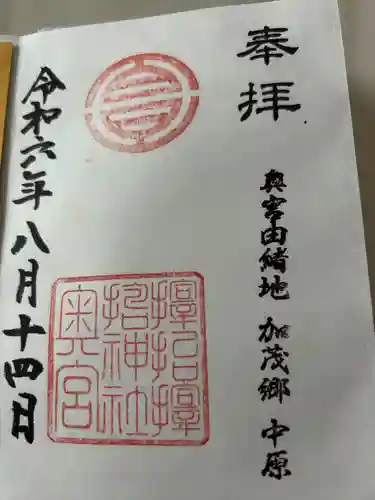 奉拝
奥宮由緒地 加茂郷 中原
令和六年八月十四日
神社
奥宮